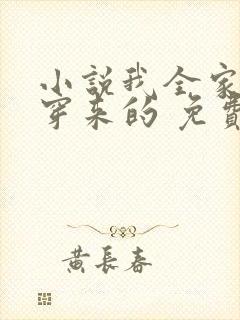 小說我全家
穿來的 免費
黃長春